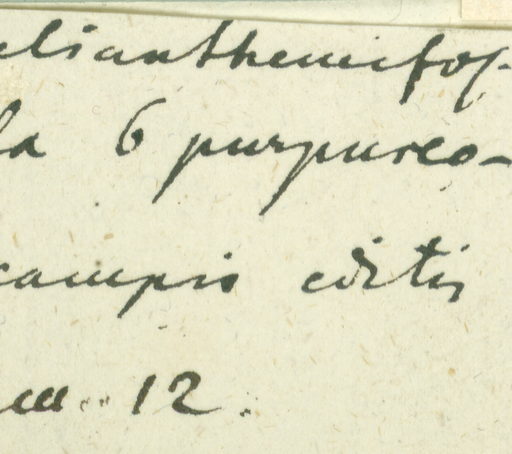 elianthemifol-
la 6 purpureo-
campis editis
m. 12.